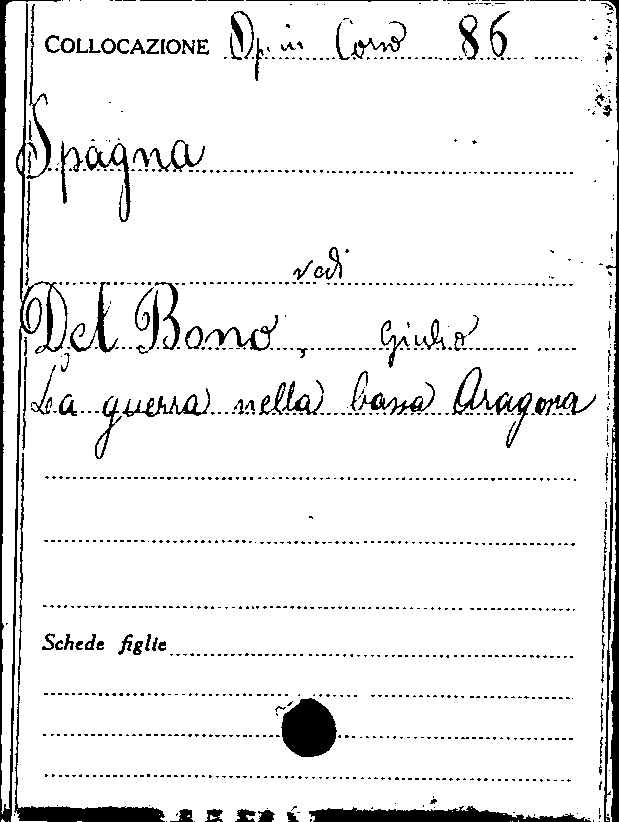 COLLOCAZIONE Op. in Corso 86
Spagna
vedi
Del Bono, Giulio
La guerra nella bassa Aragona
Schede figlie